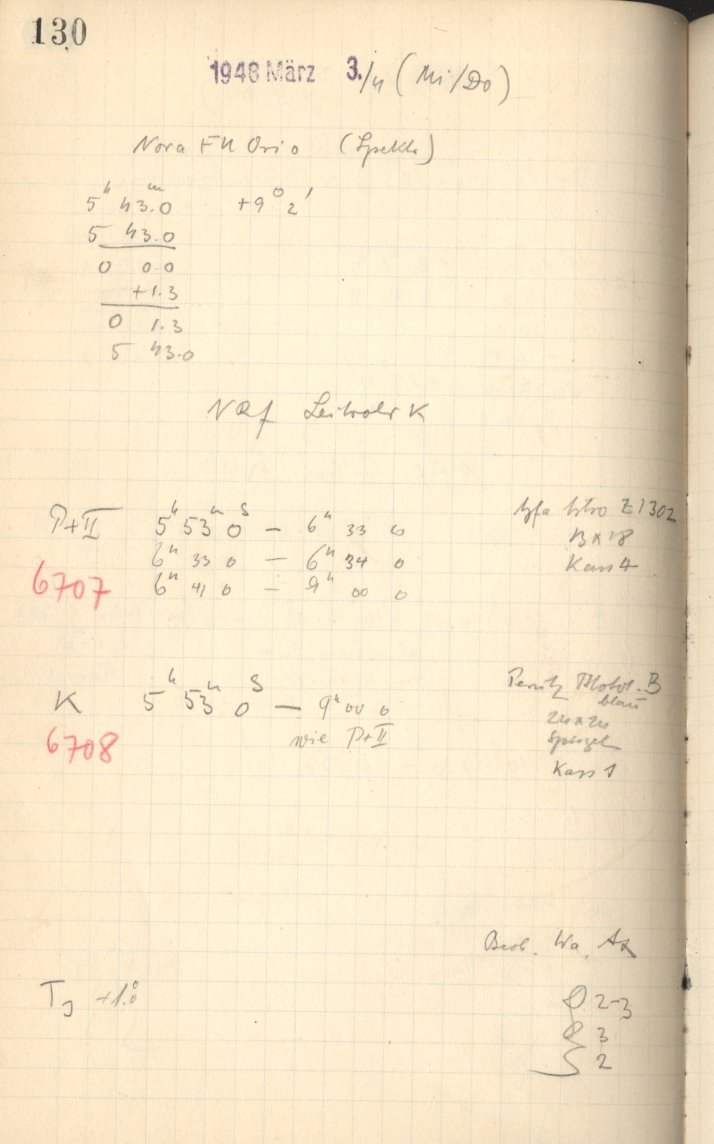 130
1948 März 3./4 (Mi/Do)
Nova FU Orio (Spektr)
5h 43.0m +9° 2'
5 43.0
0 0.0
+1.3
0 1.3
5 43.0
Leitrohr K
P+II 5h 53m 0s — 6h 33 0
6h 33 0 — 6h 34 0
6h 41 0 — 9h 00 0
6707
Agfa Astro Z1302
13x18
Kass 4
K 5h 53m 0s — 9h 00 0
wie P+II
6708
Perutz B
blau
24x24
Spiegel
Kass 1
Beob. Wa,
+1.°0
2-3
3
2